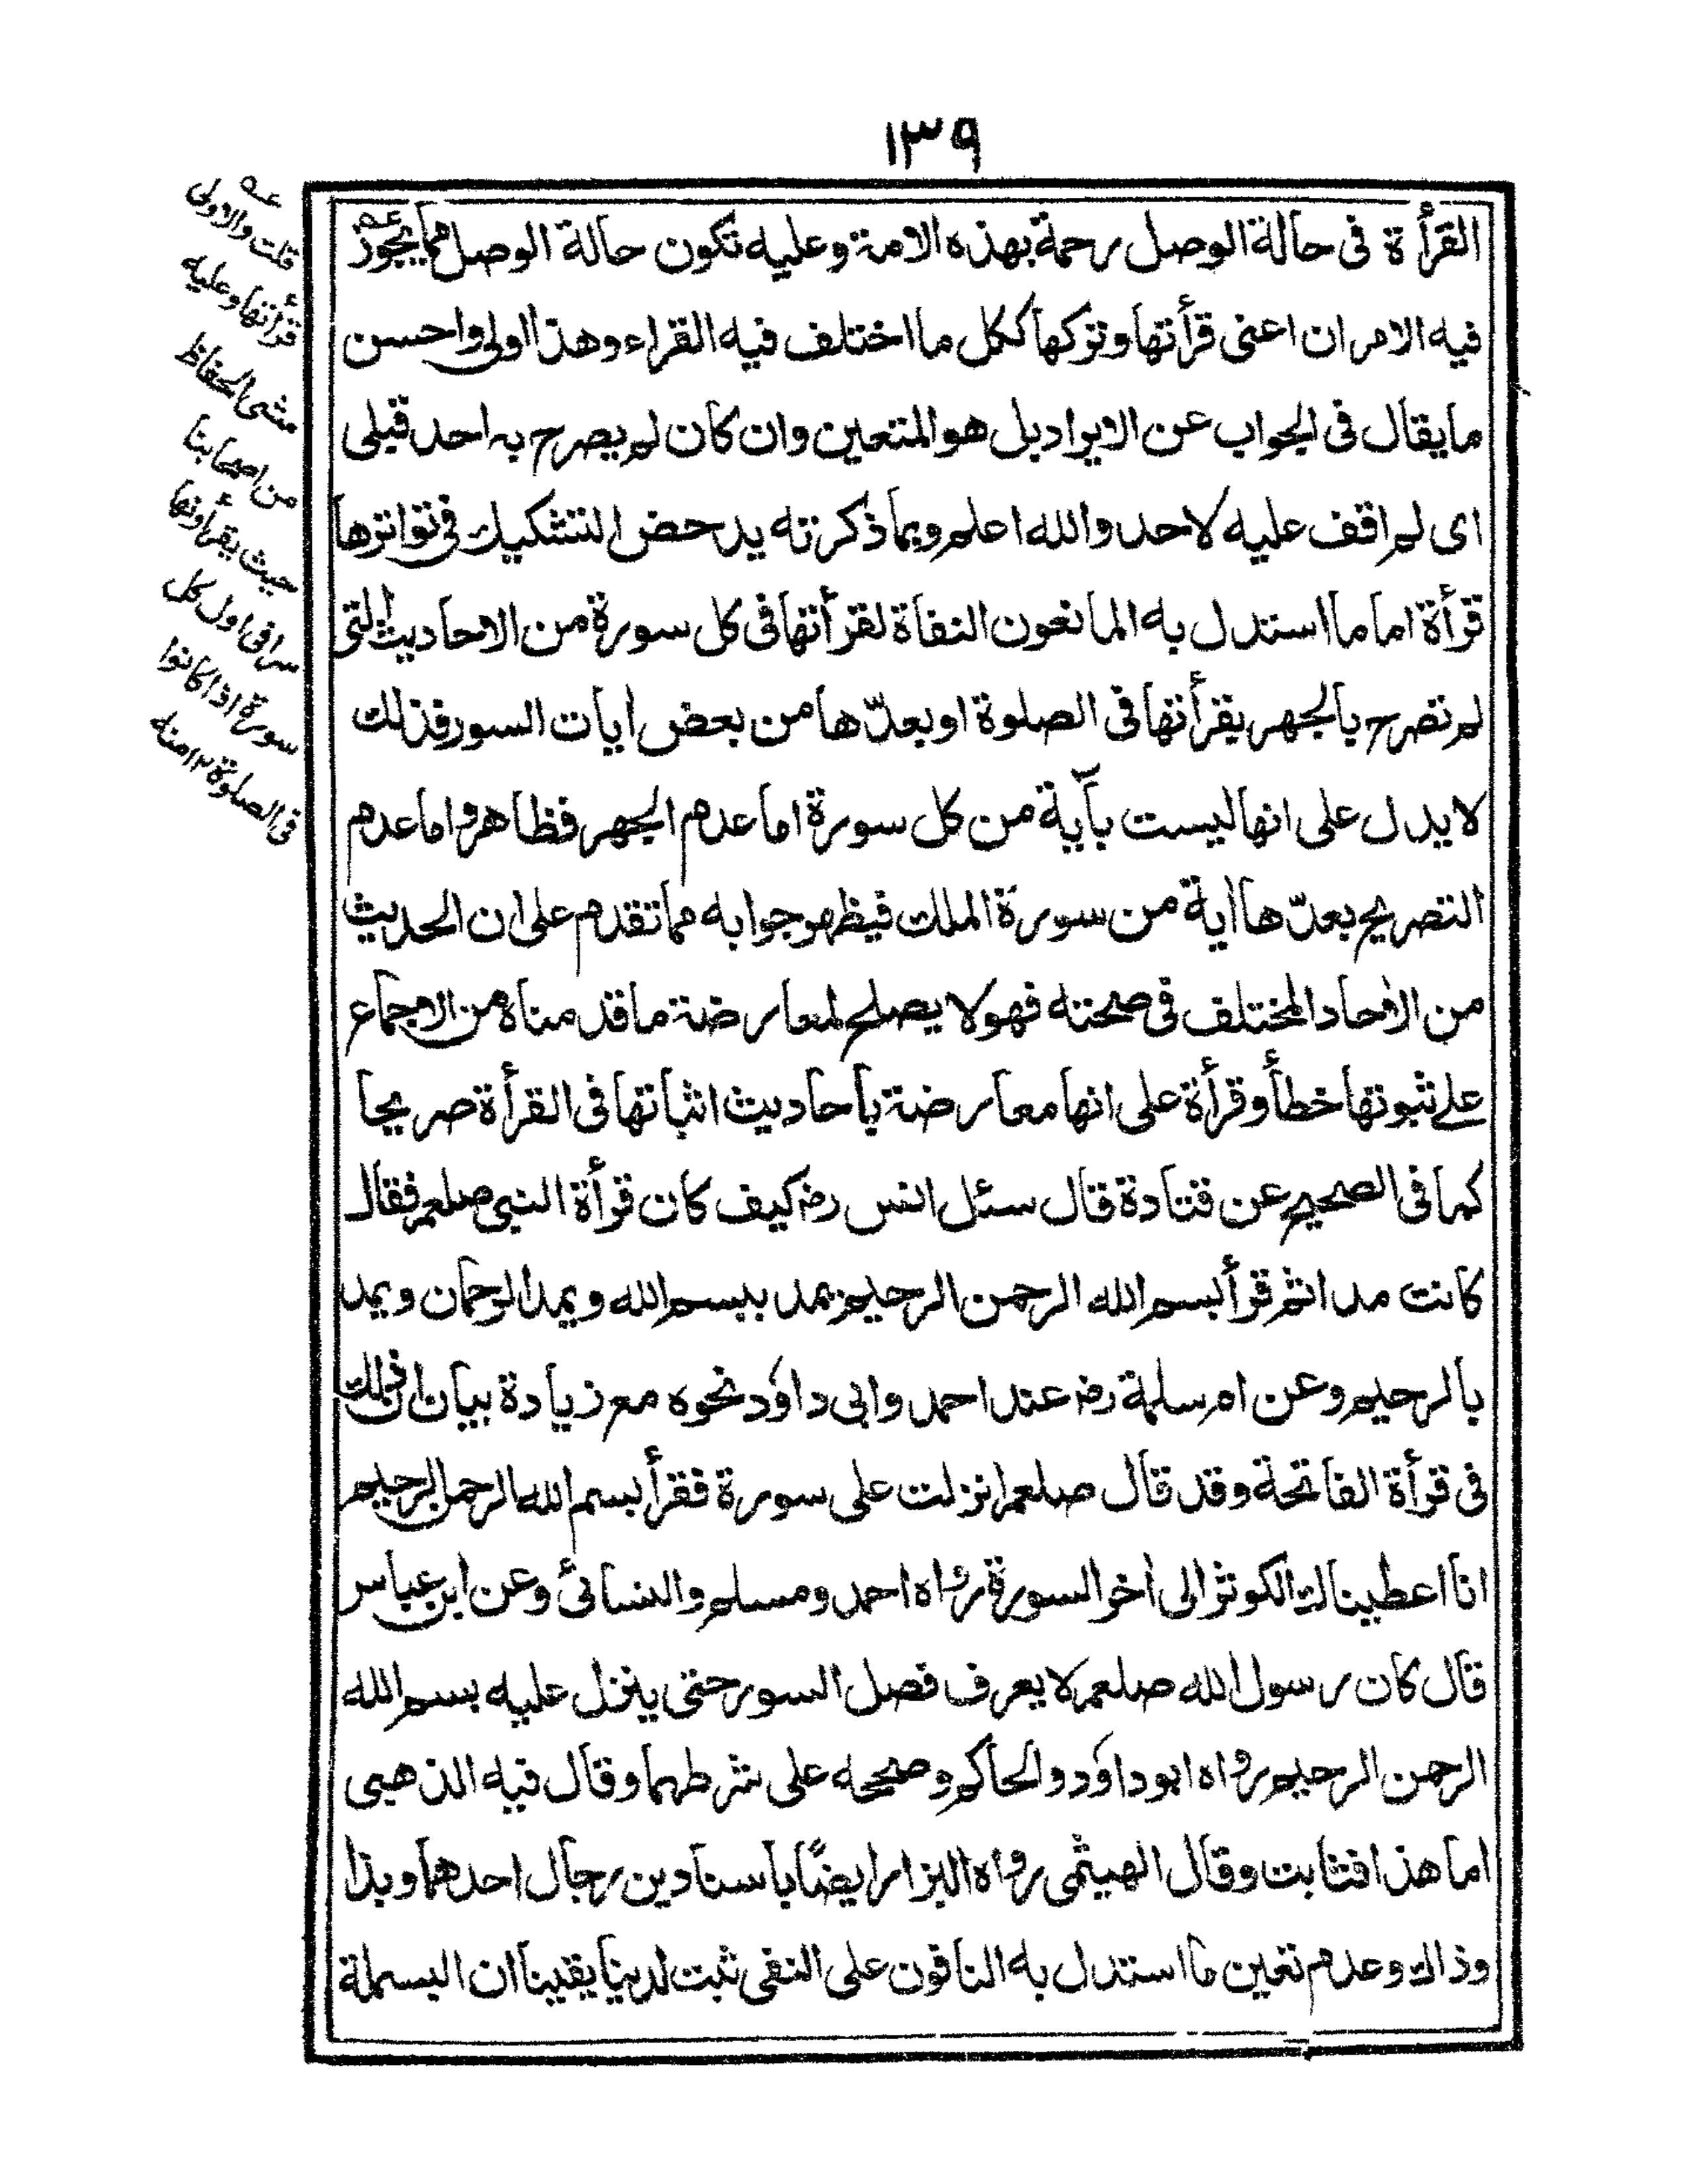 ١٣٩
القرأة فى حالة الوصل رحمة بهذه الامة وعليه تكون حالة الوصل مما يجوز عه
فيه الامران اعنى قرأتها وتركها ككل ما اختلف فيه القراء وهذا اولى واحسن
ما يقال فى الجواب عن الايراد بل هو المتعين وان كان لم يصرح به احد قبلى
اى لم اقف عليه لاحد والله اعلم وبما ذكرته يدحض التشكيك فى تواترها
قرأة اما ما استدل به المانعون النفاة لقرأتها فى كل سورة من الاحاديث التى
لم تصرح بالجهر بقرأتها فى الصلوة او بعدّها من بعض ايات السور فذلك
لا يدل على انها ليست بآية من كل سورة اما عدم الجهر فظاهر واما عدم
التصريح بعدّها اية من سورة الملك فيظهر جوابه مما تقدم على ان الحديث
من الاحاد المختلف فى صحته فهو لا يصلح لمعارضة ما قدمناه من الاجماع
على ثبوتها خطأ وقرأة على انها معارضة بأحاديث اثباتها فى القرأة صريحا
كما فى الصحيح عن قتادة قال سئل انس رض كيف كان قرأة النبى صلعم فقال
كانت مدا ثم قرأ بسم الله الرحمن الرحيم يمد ببسم الله ويمد الرحمان ويمد
بالرحيم وعن ام سلمة رض عند احمد وابى داؤد نحوه مع زيادة بيان ان ذلك
فى قرأة الفاتحة وقد قال صلعم انزلت على سورة فقرأ بسم الله الرحمن الرحيم
انا اعطيناك الكوثر الى اخر السورة رواه احمد ومسلم والنسائى وعن ابن عباس
قال كان رسول الله صلعم لا يعرف فصل السور حتى ينزل عليه بسم الله
الرحمن الرحيم رواه ابو داؤد والحاكم وصححه على شرطهما وقال فيه الذهبى
اما هذا فثابت وقال الهيثمى رواه البزار ايضًا باسنادين رجال احدهما وبذا
وذاك وعدم تعين ما استدل به النافون على النفى ثبت لدينا يقينا ان البسملة
عه
قلت والاولى
قرأتها وعليه
مشى الحفاظ
من اصحابنا
حيث يقرأونها
سرا فى اول كل
سورة اذا كانوا
فى الصلوة ١٢ منه